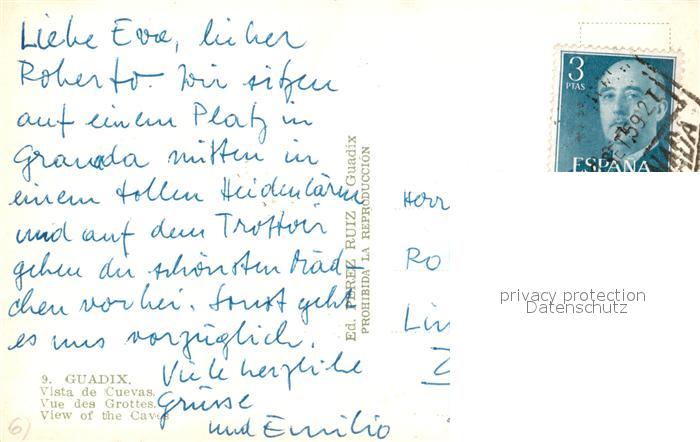 Liebe Eva, lieber
Roberto. Wir sitzen
auf einem Platz in
Granada mitten in
einem tollen Heidenlärm
und auf dem Trottoir
gehen die schönsten Mäd-
chen vorbei. Sonst geht
es uns vorzüglich.
Viele herzliche
Grüsse
und Emilio
9. GUADIX.
Vista de Cuevas.
Vue des Grottes.
View of the Caves
6)
Ed. PEREZ RUIZ Guadix
PROHIBIDA LA REPRODUCCIÓN
3
PTAS
ESPAÑA
Herr
Ro
Lin
Z
privacy protection
Datenschutz